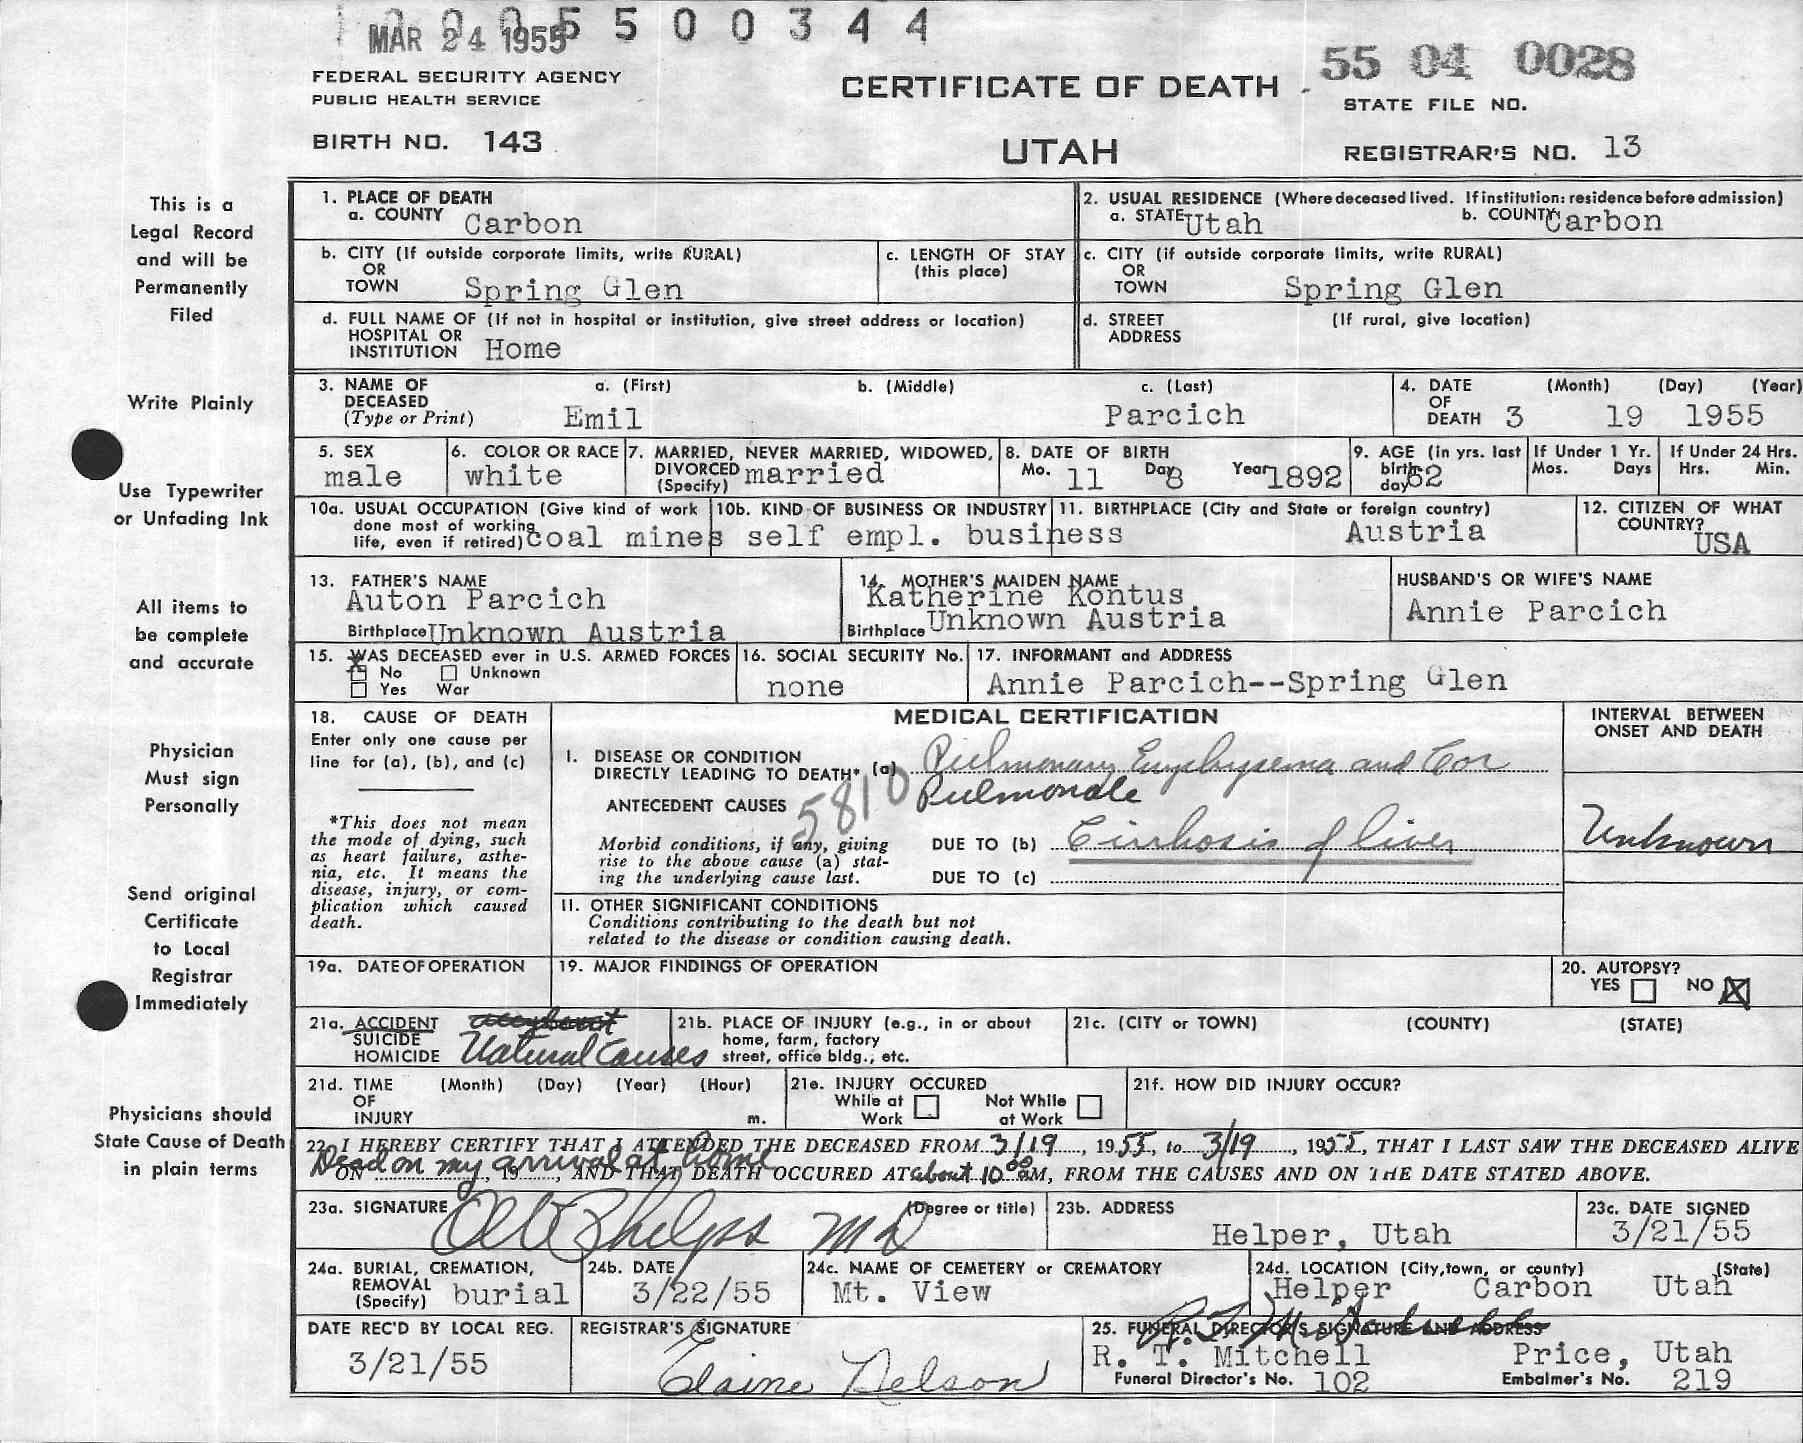 MAR 24 1955
5 5 0 0 3 4 4
55 04 0028
FEDERAL SECURITY AGENCY
PUBLIC HEALTH SERVICE
CERTIFICATE OF DEATH
STATE FILE NO.
BIRTH NO. 143
UTAH
REGISTRAR'S NO. 13
This is a
Legal Record
and will be
Permanently
Filed
Write Plainly
Use Typewriter
or Unfading Ink
All items to
be complete
and accurate
Physician
Must sign
Personally
Send original
Certificate
to Local
Registrar
Immediately
Physicians should
State Cause of Death
in plain terms
1. PLACE OF DEATH
a. COUNTY Carbon
2. USUAL RESIDENCE (Where deceased lived. If institution: residence before admission)
a. STATE Utah b. COUNTY Carbon
b. CITY (If outside corporate limits, write RURAL)
OR
TOWN Spring Glen
c. LENGTH OF STAY
(this place)
c. CITY (if outside corporate limits, write RURAL)
OR
TOWN Spring Glen
d. FULL NAME OF (If not in hospital or institution, give street address or location)
HOSPITAL OR
INSTITUTION Home
d. STREET (If rural, give location)
ADDRESS
3. NAME OF a. (First) b. (Middle) c. (Last)
DECEASED
(Type or Print) Emil Parcich
4. DATE (Month) (Day) (Year)
OF
DEATH 3 19 1955
5. SEX
male
6. COLOR OR RACE
white
7. MARRIED, NEVER MARRIED, WIDOWED,
DIVORCED married
(Specify)
8. DATE OF BIRTH
Mo. 11 Day 8 Year 1892
9. AGE (in yrs. last
birth
day) 62
If Under 1 Yr.
Mos. Days
If Under 24 Hrs.
Hrs. Min.
10a. USUAL OCCUPATION (Give kind of work
done most of working
life, even if retired) coal mines
10b. KIND OF BUSINESS OR INDUSTRY
self empl. business
11. BIRTHPLACE (City and State or foreign country)
Austria
12. CITIZEN OF WHAT
COUNTRY?
USA
13. FATHER'S NAME
Auton Parcich
Birthplace Unknown Austria
14. MOTHER'S MAIDEN NAME
Katherine Kontus
Birthplace Unknown Austria
HUSBAND'S OR WIFE'S NAME
Annie Parcich
15. WAS DECEASED ever in U.S. ARMED FORCES
x No Unknown
Yes War
16. SOCIAL SECURITY No.
none
17. INFORMANT and ADDRESS
Annie Parcich--Spring Glen
18. CAUSE OF DEATH
Enter only one cause per
line for (a), (b), and (c)
*This does not mean
the mode of dying, such
as heart failure, asthe-
nia, etc. It means the
disease, injury, or com-
plication which caused
death.
MEDICAL CERTIFICATION
INTERVAL BETWEEN
ONSET AND DEATH
I. DISEASE OR CONDITION
DIRECTLY LEADING TO DEATH* (a) Pulmonary Emphysema and Cor
Pulmonale
ANTECEDENT CAUSES 5810
Morbid conditions, if any, giving
rise to the above cause (a) stat-
ing the underlying cause last.
DUE TO (b) Cirrhosis of liver Unknown
DUE TO (c)
II. OTHER SIGNIFICANT CONDITIONS
Conditions contributing to the death but not
related to the disease or condition causing death.
19a. DATE OF OPERATION
19. MAJOR FINDINGS OF OPERATION
20. AUTOPSY?
YES NO X
21a. ACCIDENT
SUICIDE
HOMICIDE Natural Causes
21b. PLACE OF INJURY (e.g., in or about
home, farm, factory
street, office bldg., etc.
21c. (CITY or TOWN) (COUNTY) (STATE)
21d. TIME (Month) (Day) (Year) (Hour)
OF
INJURY m.
21e. INJURY OCCURED
While at Work Not While at Work
21f. HOW DID INJURY OCCUR?
22. I HEREBY CERTIFY THAT I ATTENDED THE DECEASED FROM 3/19, 1955, to 3/19, 1955, THAT I LAST SAW THE DECEASED ALIVE
Dead on my arrival at home
ON , 19 , AND THAT DEATH OCCURED AT about 10 00 aM, FROM THE CAUSES AND ON THE DATE STATED ABOVE.
23a. SIGNATURE (Degree or title)
Phelps MD
23b. ADDRESS
Helper, Utah
23c. DATE SIGNED
3/21/55
24a. BURIAL, CREMATION,
REMOVAL
(Specify) burial
24b. DATE
3/22/55
24c. NAME OF CEMETERY or CREMATORY
Mt. View
24d. LOCATION (City, town, or county) (State)
Helper Carbon Utah
DATE REC'D BY LOCAL REG.
3/21/55
REGISTRAR'S SIGNATURE
Elaine Nelson
25. FUNERAL DIRECTOR'S SIGNATURE AND ADDRESS
R. T. Mitchell Price, Utah
Funeral Director's No. 102 Embalmer's No. 219